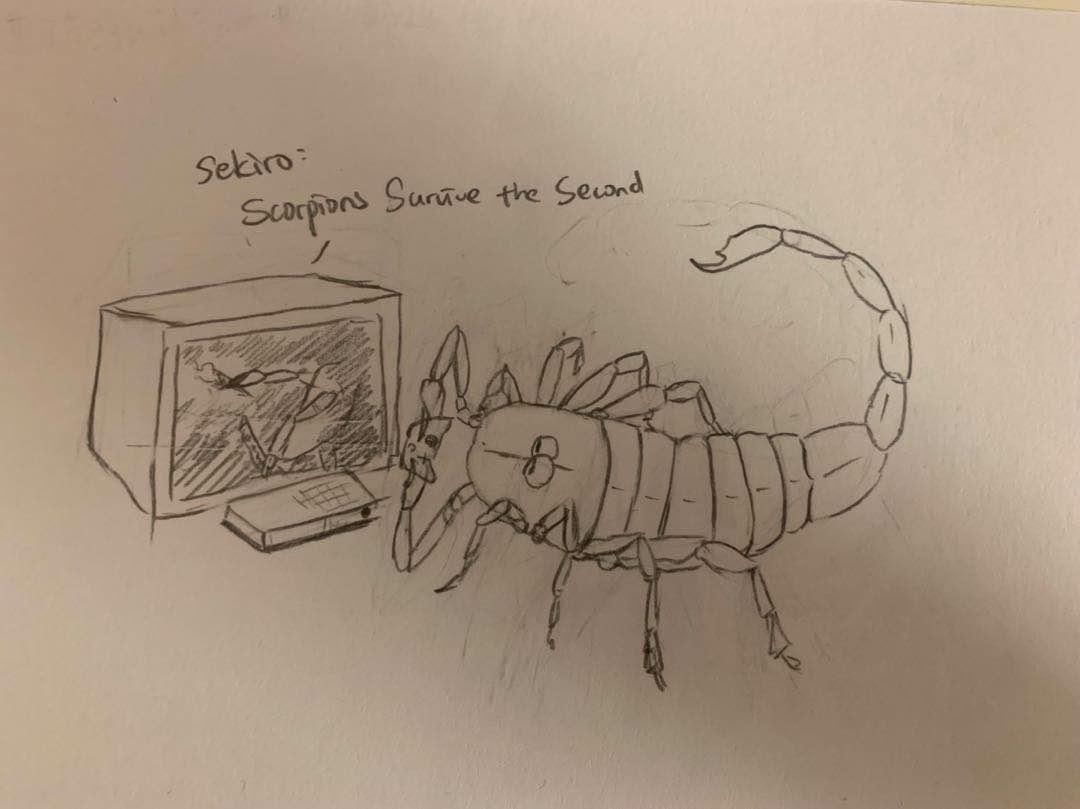 Sekiro:
Scorpions Survive the Second